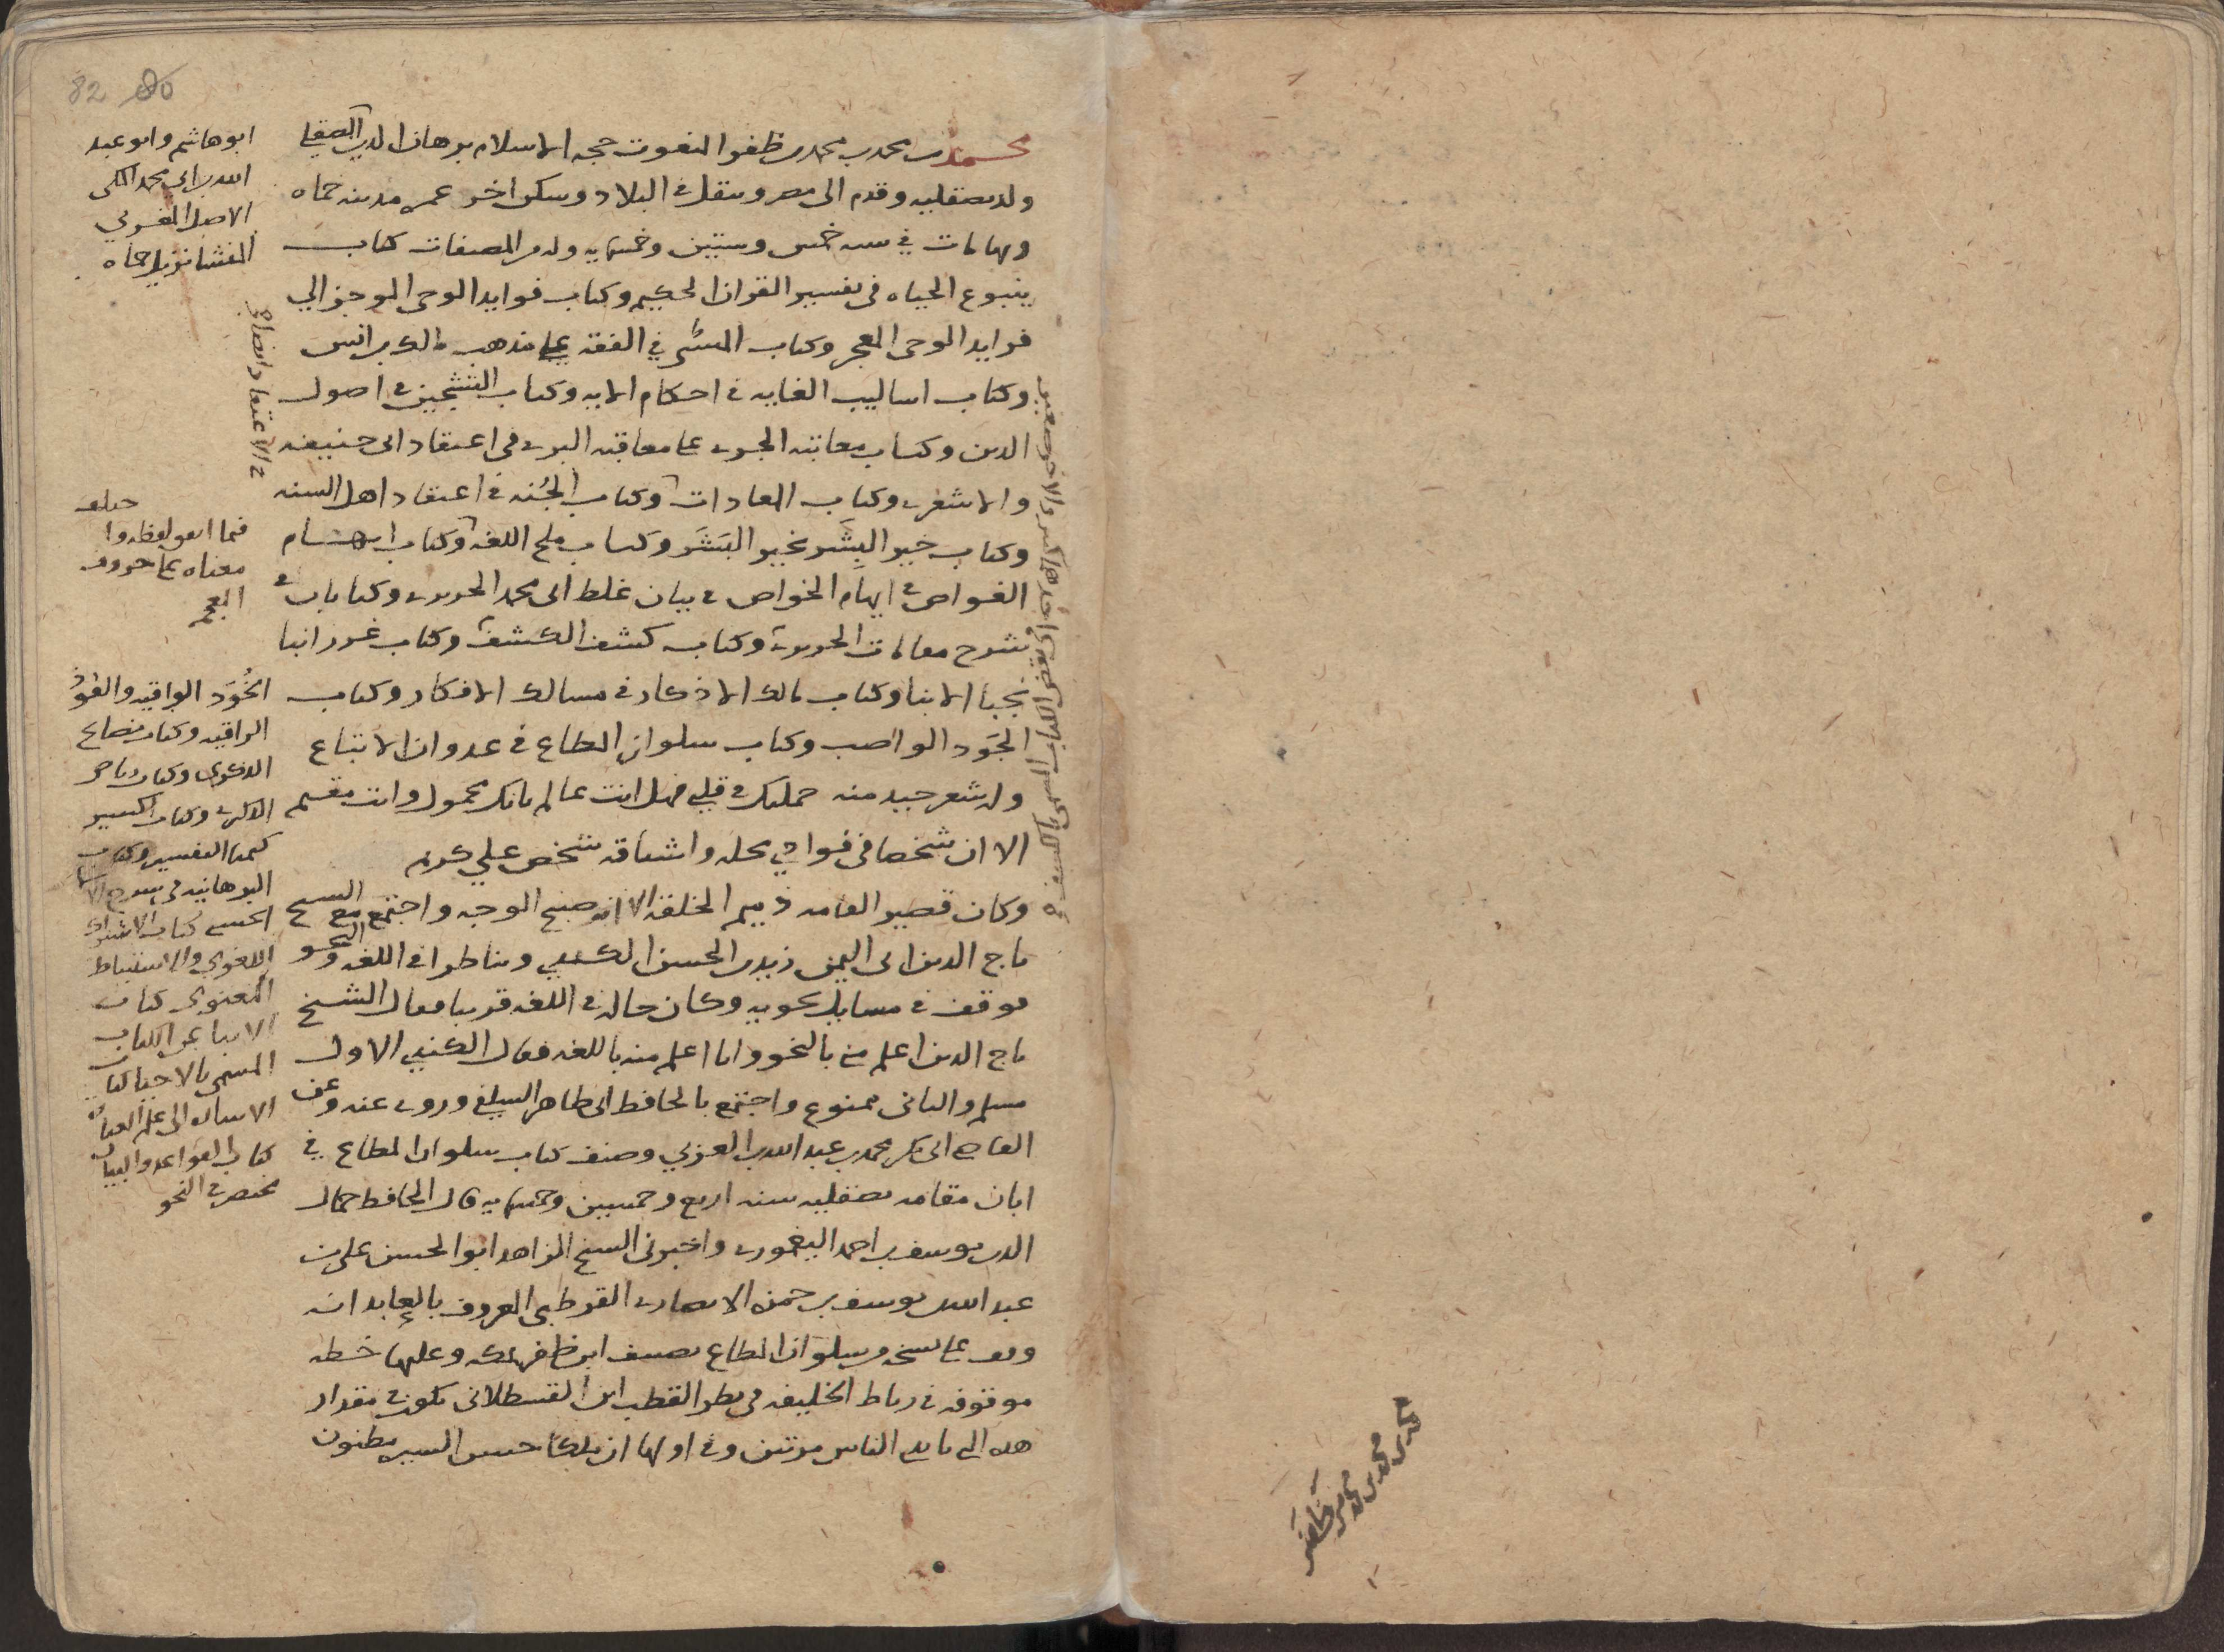 82 80
محمد بن محمد بن محمد بن ظفر المنعوت حجه الاسلام برهان الدين الصقلي
ولد بصقليه وقدم الى مصر وتنقل في البلاد وسكن اخر عمره مدينه حماه
وبها مات في سنه خمس وستين وخمسمايه وله من المصنفات كتاب
ينبوع الحياه في تفسير القران الحكيم وكتاب فوايد الوحي الموجز الي
فرايد الوحي المعجز وكتاب في الفقه علي مذهب مالك بن انس
وكتاب اساليب الغايه في احكام الايه وكتاب في اصول
الدين وكتاب معاتبه الجري على معاقبه البري في اعتقاد ابي حنيفه
والاشعري وكتاب المعادات وكتاب الجنه في اعتقاد اهل السنه
وكتاب خير البشر بخير البشر وكتاب ملح اللغه وكتاب
الغواص في ايهام الخواص في بيان غلط ابي محمد الحريري وكتابان في
شرح مقامات الحريري وكتاب كشف الكشف وكتاب غرر انبا
نجبا الابنا وكتاب مالك الاذكار في مسالك الافكار وكتاب
الجود الواصب وكتاب سلوان المطاع في عدوان الاتباع
وله شعر جيد منه حملتك في قلبي فهل انت عالم بانك محمول وانت مقيم
الا ان شخصا في فوادي محله واشتاقه شخص علي كريم
وكان قصير القامه ذميم الخلقه الا انه صبيح الوجه واجتمع مع الشيخ
تاج الدين ابي اليمن زيد بن الحسن الكندي وتناظرا في اللغه والنحو
فوقف في مسايل نحويه وكان حاله في اللغه قريبا فقال الشيخ
تاج الدين اعلم مني بالنحو وانا اعلم منه باللغه فقال الكندي الاول
مسلم والثاني ممنوع واجتمع بالحافظ ابي طاهر السلفي وروى عنه وعن
القاضي ابي بكر محمد بن عبد الله بن العربي وصنف كتاب سلوان المطاع في
ابان مقامه بصقليه سنه اربع وخمسين وخمسمايه قال الحافظ جمال
الدين يوسف بن احمد اليغموري واخبرني الشيخ الزاهد ابو الحسن علي بن
عبد الله بن يوسف بن حمزه الانصاري القرطبي المعروف بالعابد انه
وقف على نسخه من سلوان المطاع تصنيف ابن ظفر بمكه وعليها خطه
موقوفه في رباط الخليفه في نظر القطب ابن القسطلاني تكون في مقدار
هذه التي بايدي الناس مرتين وفي اولها ان ملكا حسن السيره
ابو هاشم وابو عبد
الله بن ابي محمد المكي
الاصل المغربي
المنشا نزيل حماه
فيما اتفق لفظه و
معناه على حروف
المعجم
الخود الواقيه والعوذ
الراقيه وكتاب نصايح
الذكرى وكتاب رياض
الذكرى وكتاب اكسير
كيميا التفسير وكتاب
البرهانيه في شرح الاسما
الحسنى كتاب الاشتراك
اللغوي والاستنباط
المعنوي كتاب
الانبا عن الكتاب
المسمى بالاحيا كتاب
الاشاره الى علم العباره
كتاب القواعد والبيان
مختصر في النحو
محمد بن محمد بن محمد بن ظفر